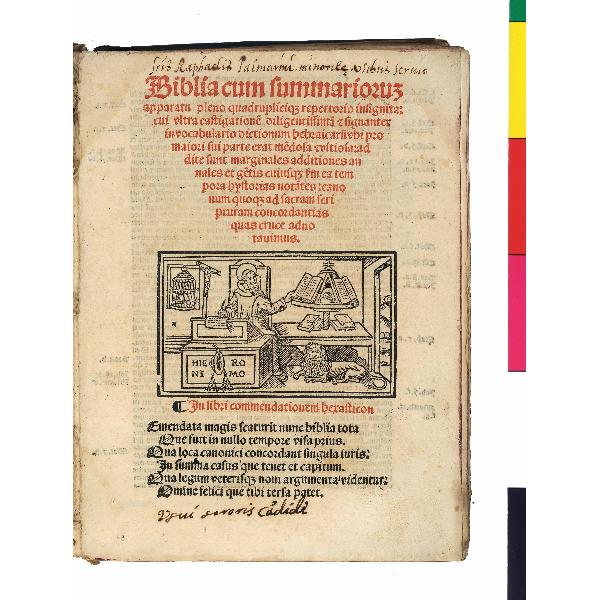 Biblia cum summarioruz
apparatu pleno quadrupliciqz repertorio insignita:
cui vltra castigationē diligentissimā & signanter
in vocabulario dictionum hebraicarū vbi pro
maiori sui parte erat mēdosa & vitiosa: ad
dite sunt marginales additiones an
nales et gētis cuiusqz
pora hystorias notātes: cano
num quoqz ad sacram scri
pturam concordantias
quas cruce adno
tauimus.
HIE RO
NI MO
¶ In libri commendationem hexasticon
Emendata magis scaturit nunc biblia tota
Que fuit in nullo tempore visa prius.
Qua loca canonici concordant singula iuris:
In summa casus que tenet et capitum.
Qua legum veterisqz noui argumenta videntur:
Omine felici que tibi tersa patet.